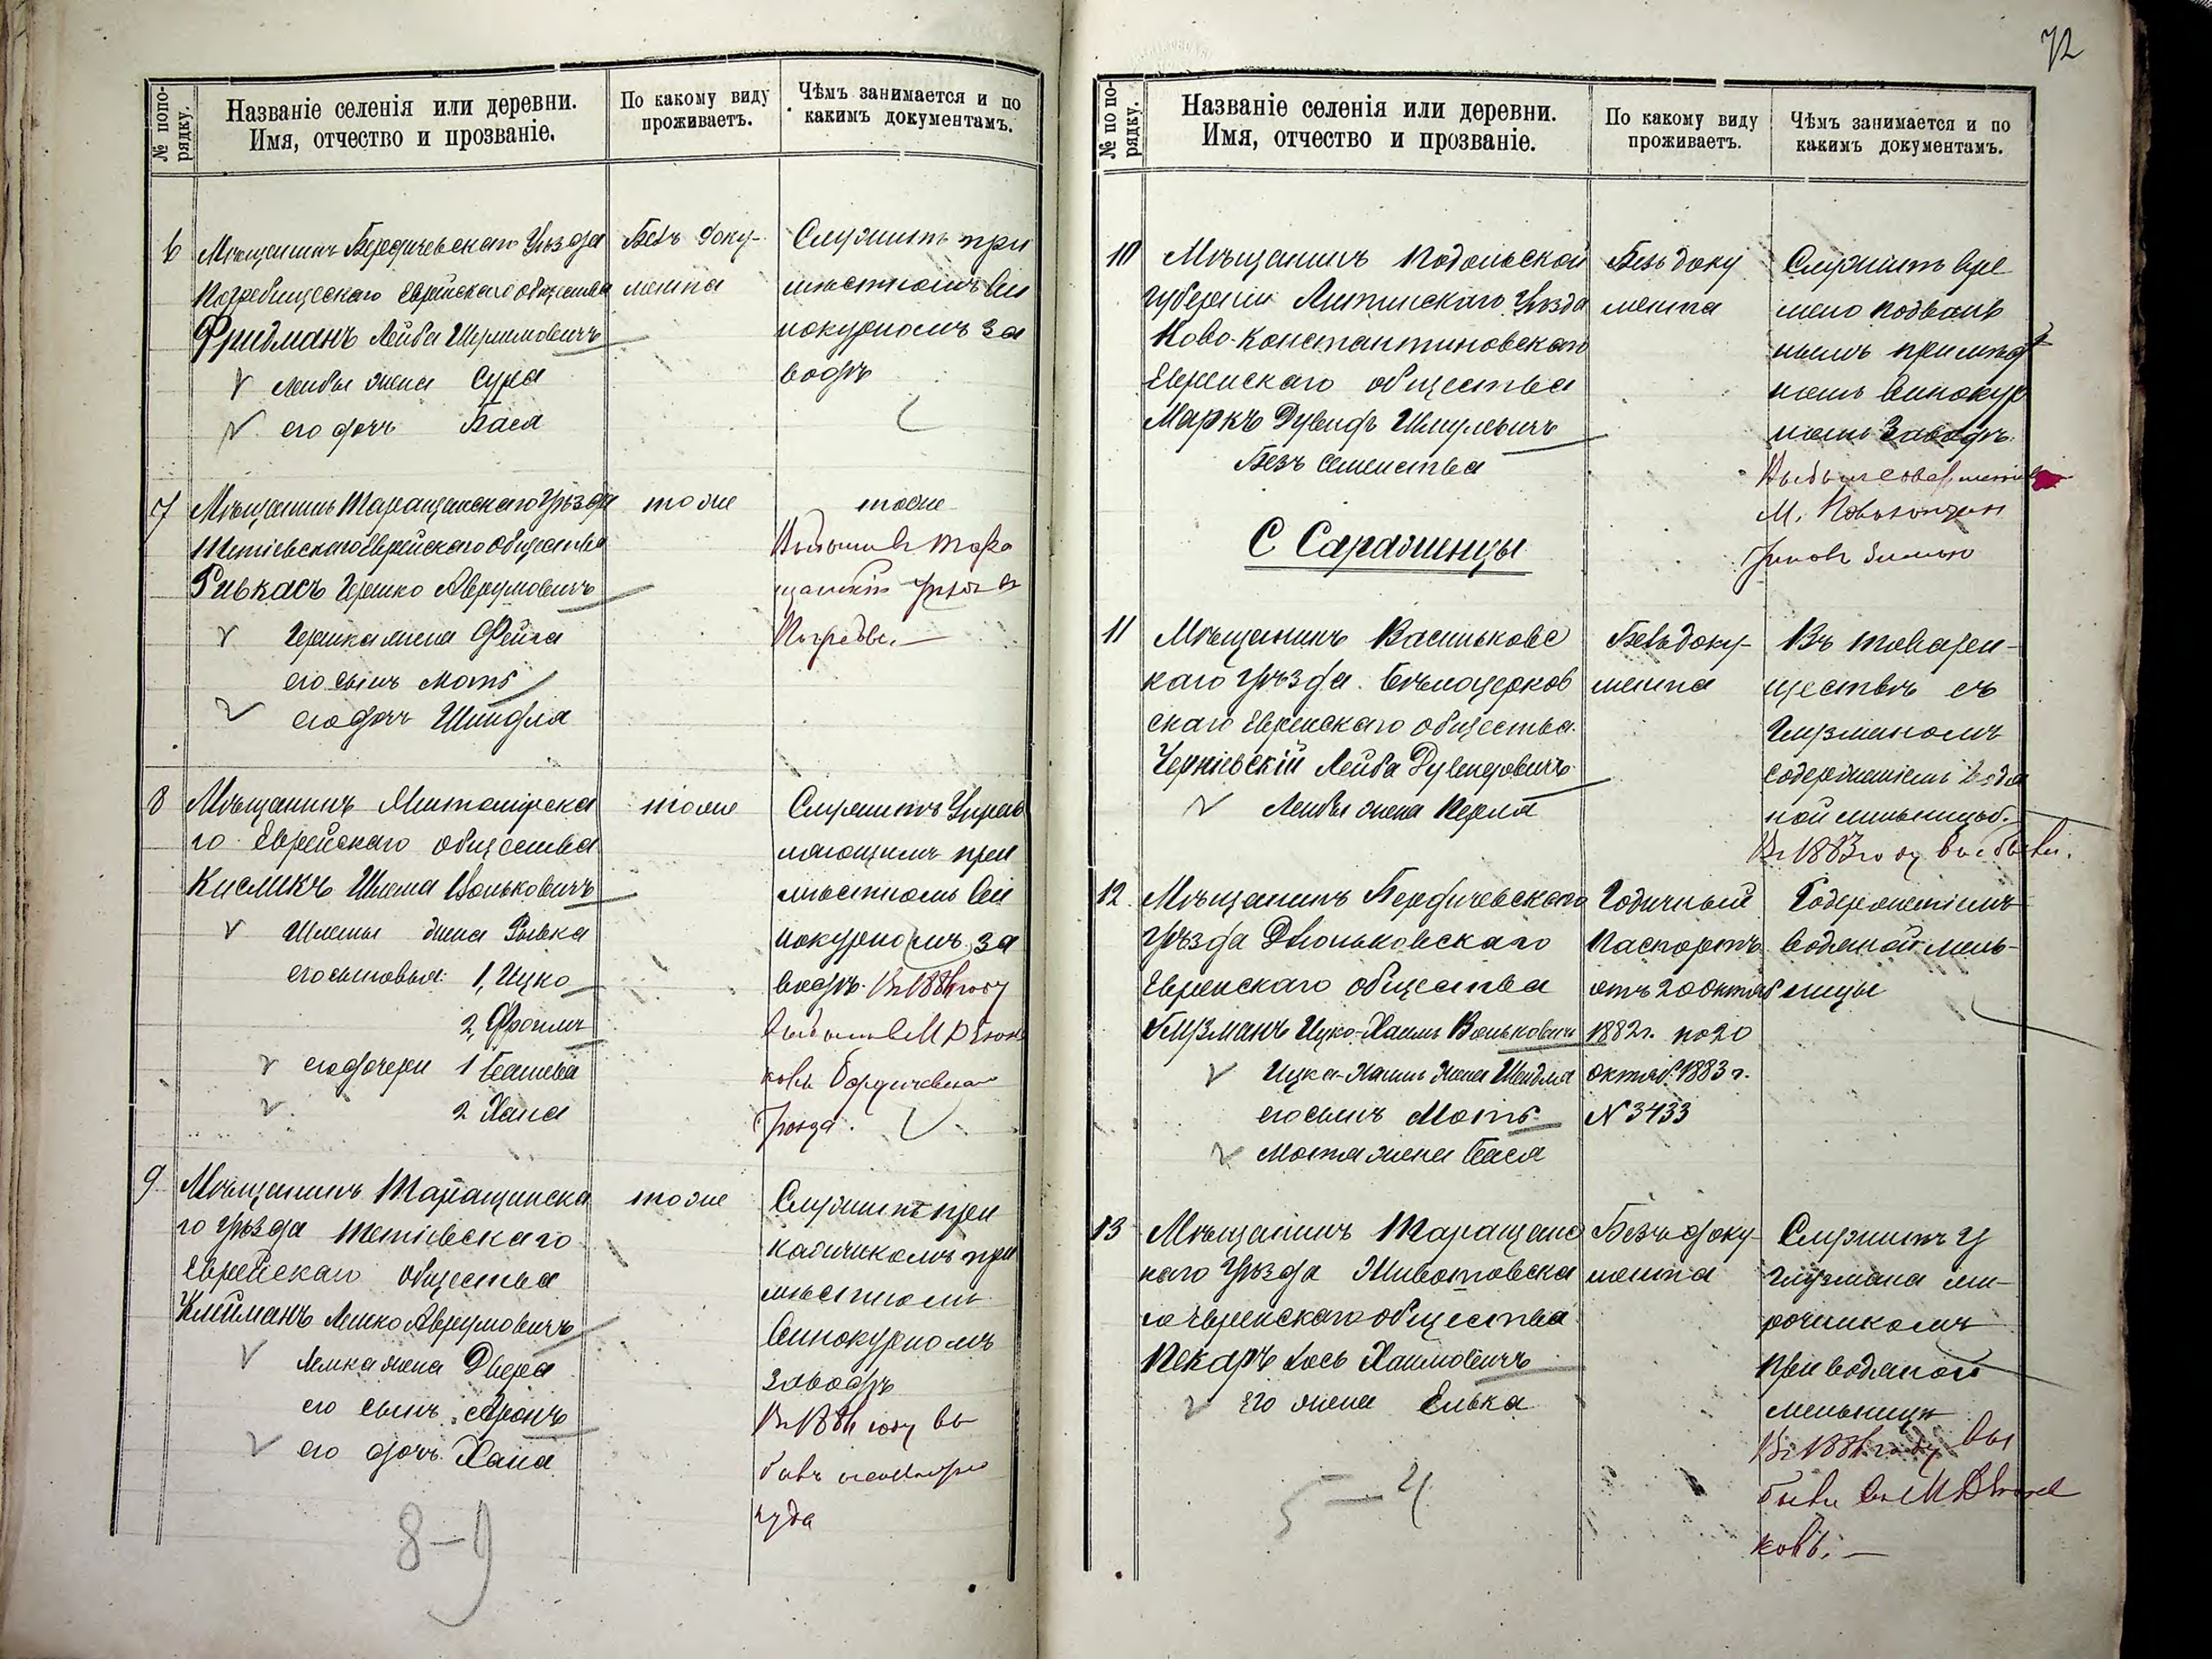 72
№ по по-
рядку.
Названіе селенія или деревни.
Имя, отчество и прозваніе.
По какому виду
проживаетъ.
Чѣмъ занимается и по
какимъ документамъ.
6
Мѣщанинъ Бердичевскаго Уѣзда
Погребищескаго Еврейскаго общества
Фридманъ Лейба Шулимовичъ
Лейбы жена Сура
его дочь Бася
Безъ доку-
мента
Служитъ при
мѣстномъ ви
нокурномъ за
водѣ
7
Мѣщанинъ Таращанскаго Уѣзда
Тетіевскаго Еврейскаго Общества
Ривкасъ Гершко Аврумовичъ
Гершка жена Фейга
его сынъ Мотя
его дочь Шиндля
тоже
тоже
Выбыли въ Тара
щанскій уѣздъ в
8
Мѣщанинъ Житомірска
го Еврейскаго общества
Кисликъ Шлема Волковичъ
Шлемы жена Ривка
его сыновья: 1, Ицко
2, Фроимъ
его дочери 1 Башева
2 Хана
тоже
Служитъ Управ
ляющимъ при
мѣстномъ ви
нокурномъ за
водѣ. Въ 1886 году
ковъ Бердичевскаго
уѣзда.
9
Мѣщанинъ Таращанска
го уѣзда Тетіевскаго
Еврейскаго общества
Клейманъ Лейко Аврумовичъ
Лейка жена Двера
его сынъ Аронъ
его дочь Хана
тоже
Служитъ при
кащикомъ при
мѣстномъ
Винокурномъ
заводѣ
Въ 1886 году вы
былъ
куда
8-9
№ по по-
рядку.
Названіе селенія или деревни.
Имя, отчество и прозваніе.
По какому виду
проживаетъ.
Чѣмъ занимается и по
какимъ документамъ.
10
Мѣщанинъ Подольской
губерніи Литинскаго Уѣзда
Ново-Константиновскаго
Еврейскаго общества
Маркъ Дувидъ Шмулевичъ
Безъ семейства
Безъ доку
мента
Служитъ вре
мено подваль
нымъ при мѣст
номъ винокур
номъ Заводѣ.
С Саражинцы
11
Мѣщанинъ Васильковс
каго уѣзда Бѣлоцерков
скаго Еврейскаго общества.
Черніевскій Лейба Дувидовичъ
Лейбы жена Перля
Безъ доку-
мента
Въ товарри-
ществѣ съ
Глузманомъ
содержаніемъ водя
ной мельницы.
Въ 1883 году выбылъ.
12.
Мѣщанинъ Бердичевскаго
уѣзда Дзюньковскаго
Еврейскаго общества
Глузманъ Ицко-Хаимъ Волковичъ
Ицка-Хаима жена Шейдля
его сынъ Мотя
Мотя жена Бася
Годичный
Паспортъ
отъ 20 октяб
1882 г. по 20
октяб. 1883 г.
N 3433
Содержаніемъ
водяной мель-
ницы
13
Мѣщанинъ Таращанс
каго Уѣзда Животовска
го Еврейскаго общества
Пекарь Іось Хаимовичъ
Его жена Елька
Безъ доку-
мента
Служитъ у
Глузмана ми
рочникомъ
при водяной
мельницѣ
Въ 1886 году вы
былъ въ М Дзюнь
ковъ. —
5-4